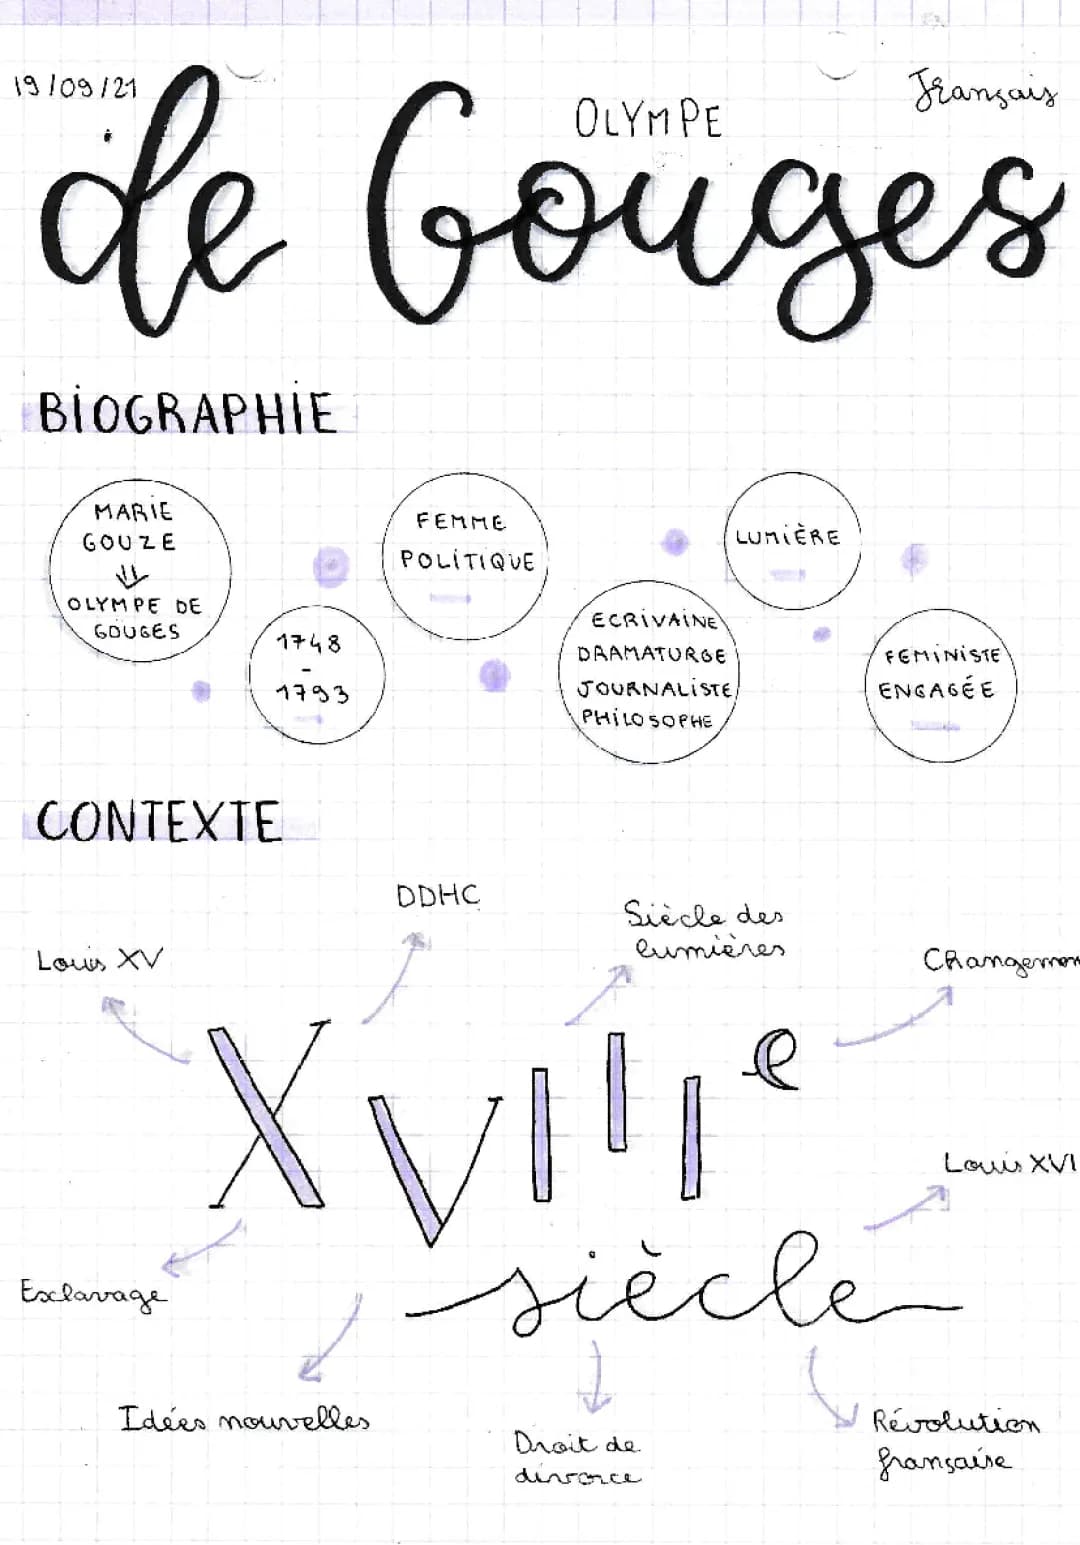 19/09/21
Français
OLYMPE
de Gouges
BIOGRAPHIE
MARIE
GOUZE
⇓
OLYMPE DE
GOUGES
1748
-
1793
FEMME
POLITIQUE
ECRIVAINE
DRAMATURGE
JOURNALISTE
PHILOSOPHE
LUMIÈRE
FEMINISTE
ENGAGÉE
CONTEXTE
DDHC
Siècle des
lumières
Louis XV
Changemen
XVIIIe
siècle
Louis XVI
Esclavage
Idées nouvelles
Droit de
divorce
Révolution
française